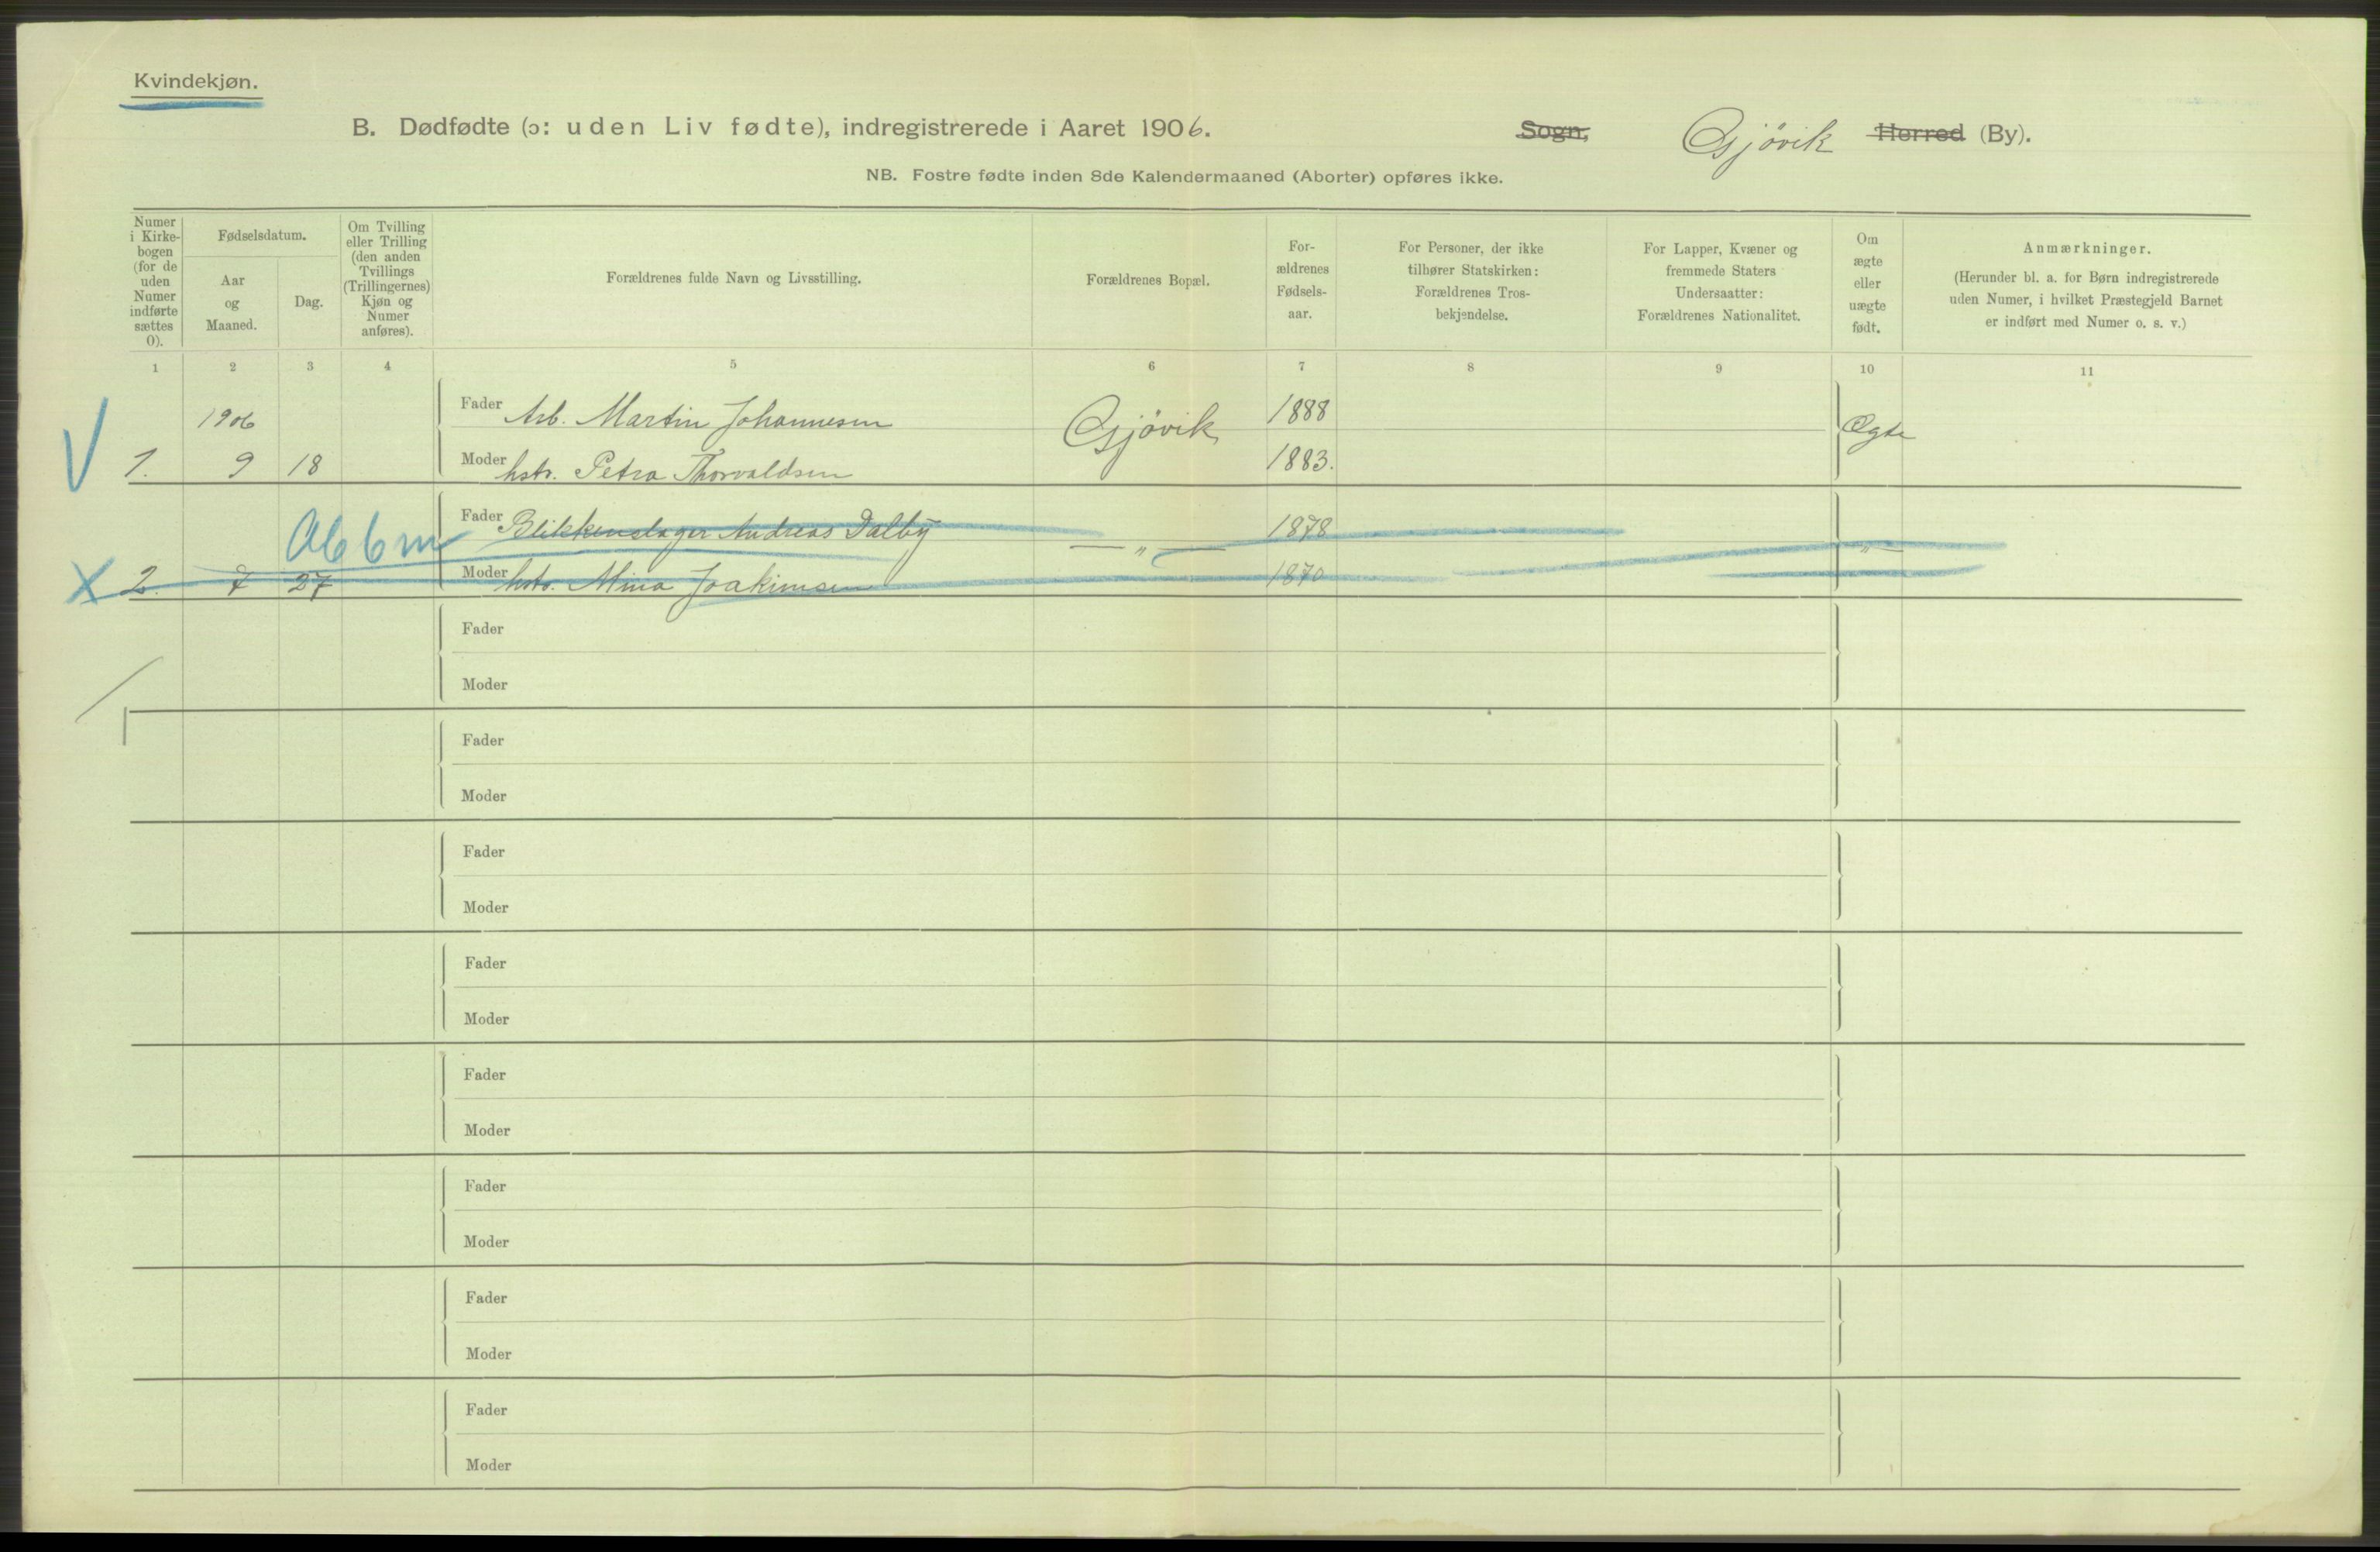 Kvindekjøn.
B. Dødfødte (ɔ: uden Liv fødte), indregistrerede i Aaret 1906.
Sogn, Gjövik Herred (By).
NB. Fostre fødte inden 8de Kalendermaaned (Aborter) opføres ikke.
Numer
i Kirke-
bogen
(for de
uden
Numer
indførte
sættes
0).
Fødselsdatum.
Aar
og
Maaned.
Dag.
Om Tvilling
eller Trilling
(den anden
Tvillings
(Trillingernes)
Kjøn og
Numer
anføres).
Forældrenes fulde Navn og Livsstilling.
Forældrenes Bopæl.
For-
ældrenes
Fødsels-
aar.
For Personer, der ikke
tilhører Statskirken:
Forældrenes Tros-
bekjendelse.
For Lapper, Kvæner og
fremmede Staters
Undersaatter:
Forældrenes Nationalitet.
Om
ægte
eller
uægte
født.
Anmærkninger.
(Herunder bl. a. for Børn indregistrerede
uden Numer, i hvilket Præstegjeld Barnet
er indført med Numer o. s. v.)
1 2 3 4 5 6 7 8 9 10 11
1906 Fader Arb. Martin Johannesen Gjövik 1888 Ægte
1. 9 18 Moder hstr. Petra Thorvaldsen 1883.
Fader Blikkenslager Andreas Dalby — " — 1878 "
2. 7 27 Moder hstr. Mina Joakimsen 1870
Fader
Moder
Fader
Moder
Fader
Moder
Fader
Moder
Fader
Moder
Fader
Moder
Fader
Moder
Fader
Moder